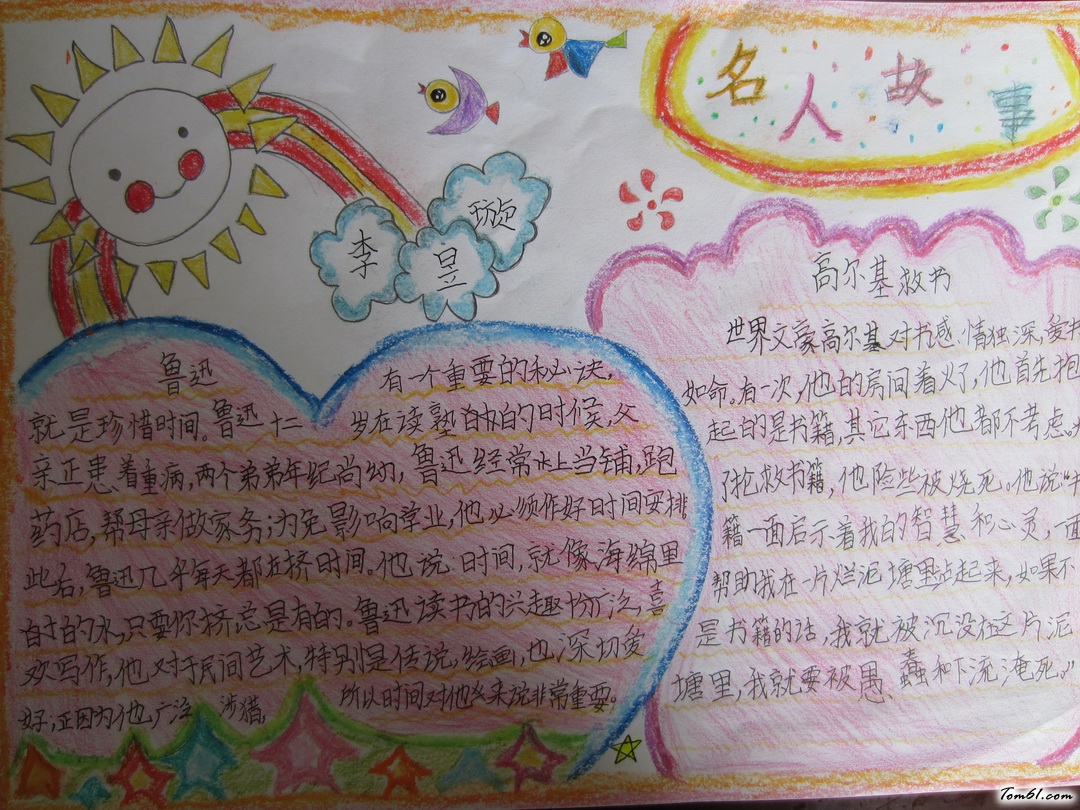 名人故事
李昱璇
鲁迅
有一个重要的秘诀,
就是珍惜时间。鲁迅十二 岁在读塾的时候,父
亲正患着重病,两个弟弟年纪尚幼,鲁迅经常上当铺,跑
药店,帮母亲做家务;为免影响学业,他必须作好时间安排
此后,鲁迅几乎每天都在挤时间。他说:时间,就像海绵里
的水,只要你挤,总是有的。鲁迅读书的兴趣广泛,喜
欢写作,他对于民间艺术,特别是传说,绘画,也深切爱
好;正因为他广泛 涉猎,
所以时间对他来说非常重要。
高尔基救书
世界文豪高尔基对书感情独深,爱书
如命。有一次,他的房间着火了,他首先抱
起的是书籍,其它东西他都不考虑。
了抢救书籍,他险些被烧死。他说"
籍一面启示着我的智慧和心灵,一面
帮助我在一片烂泥塘里站起来,如果不
是书籍的话,我就被沉没在这片泥
塘里,我就要被愚蠢和下流淹死。"
Tom61.com